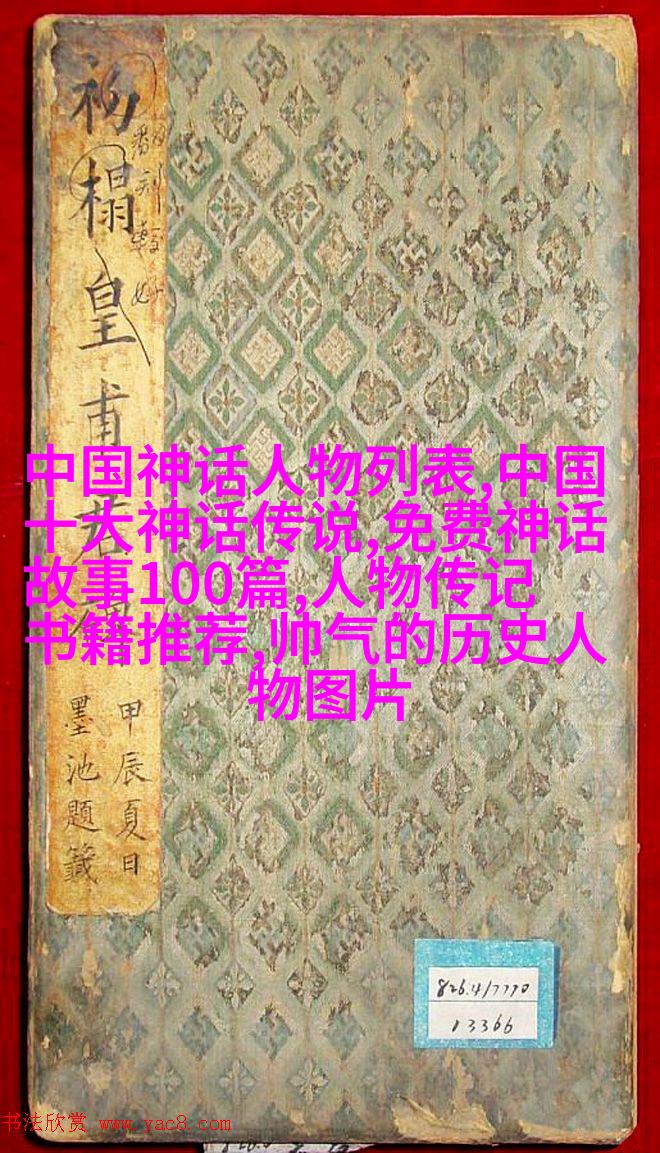 初榻皇甫君碑
翻刻較好
甲辰夏日
墨池題籤
中国神话人物列表,中国
十大神话传说,免费神话
故事100篇,人物传记
书籍推荐,帅气的历史人
物图片
826.4/7770
13366
书法欣赏 www.yac8.com